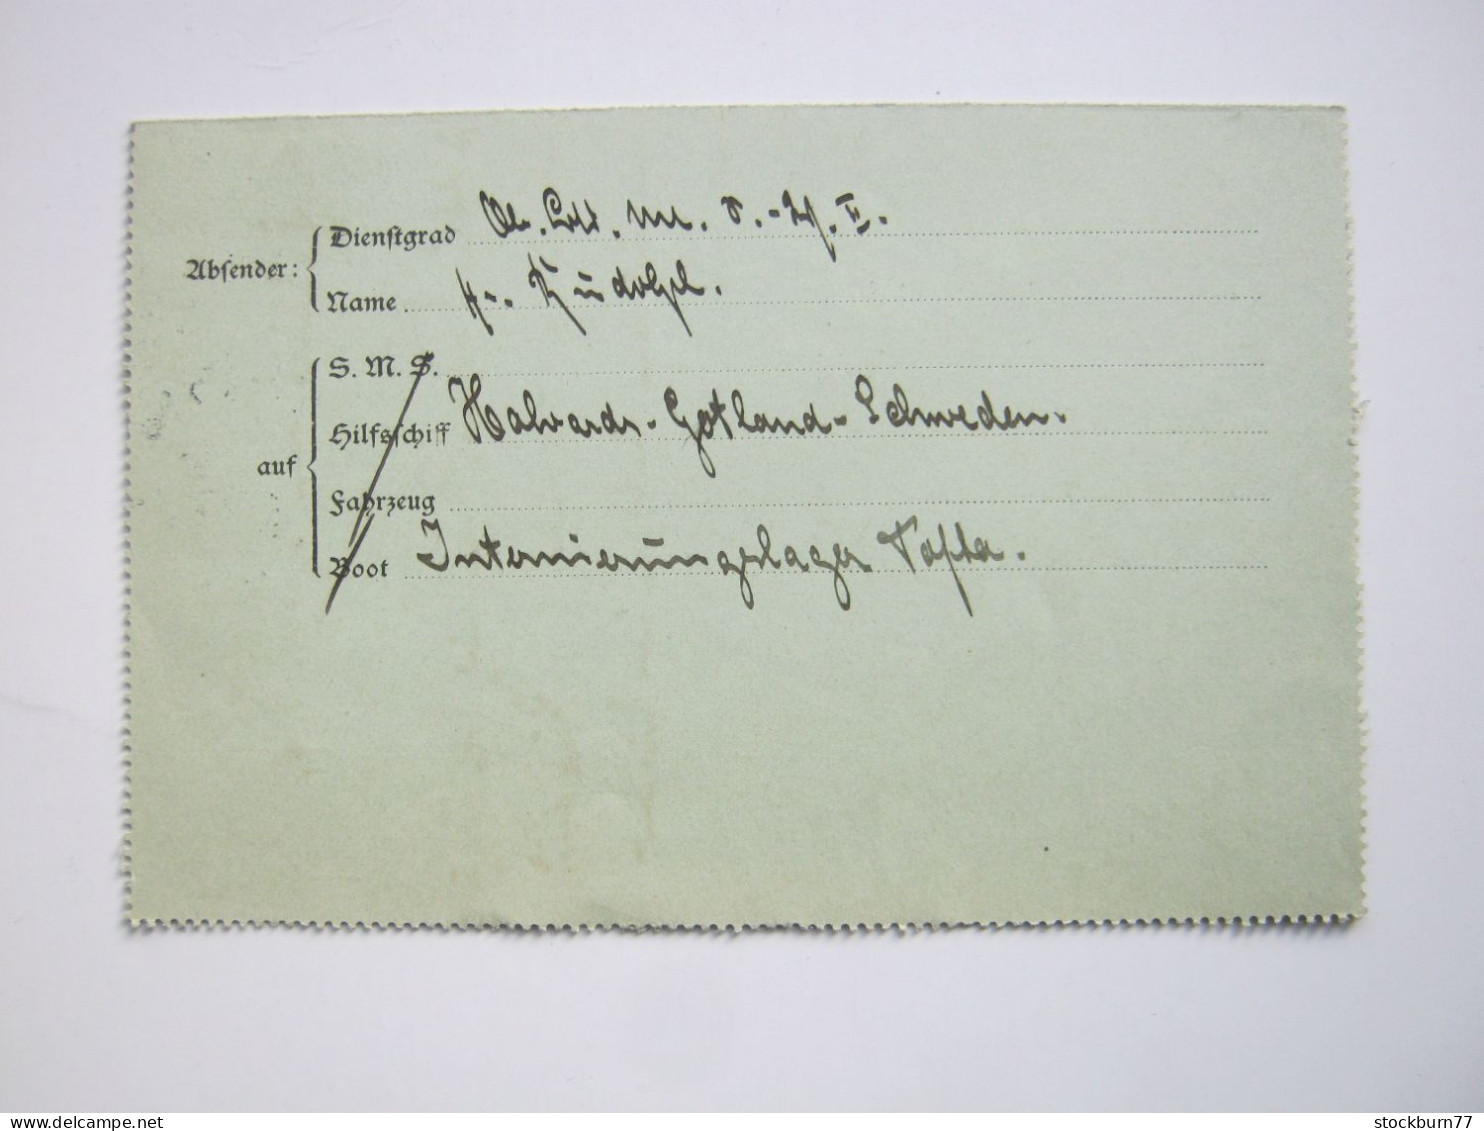 Absender:
Dienstgrad Ob. Btt. M. d. II.
Name Rudolph.
auf
S. M. S.
Hilfsschiff Halvards-Gotland-Schweden.
Fahrzeug
Boot Internierungslager Tofta.
delcampe.net
stockburn77